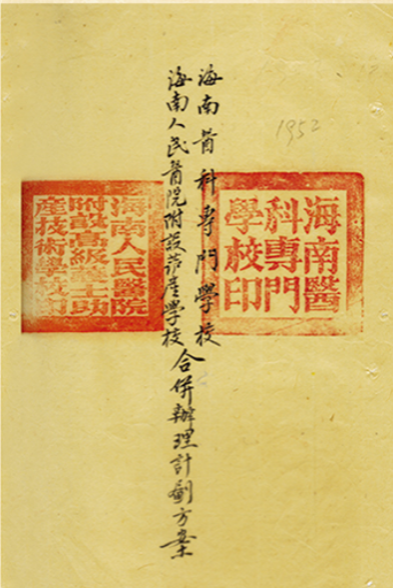 海南醫科專門學校
海南人民醫院附設護產學校
合併辦理計劃方案
1952
海南醫
科專門
學校印
海南人民醫院
附設高級護士助
產技術學校印